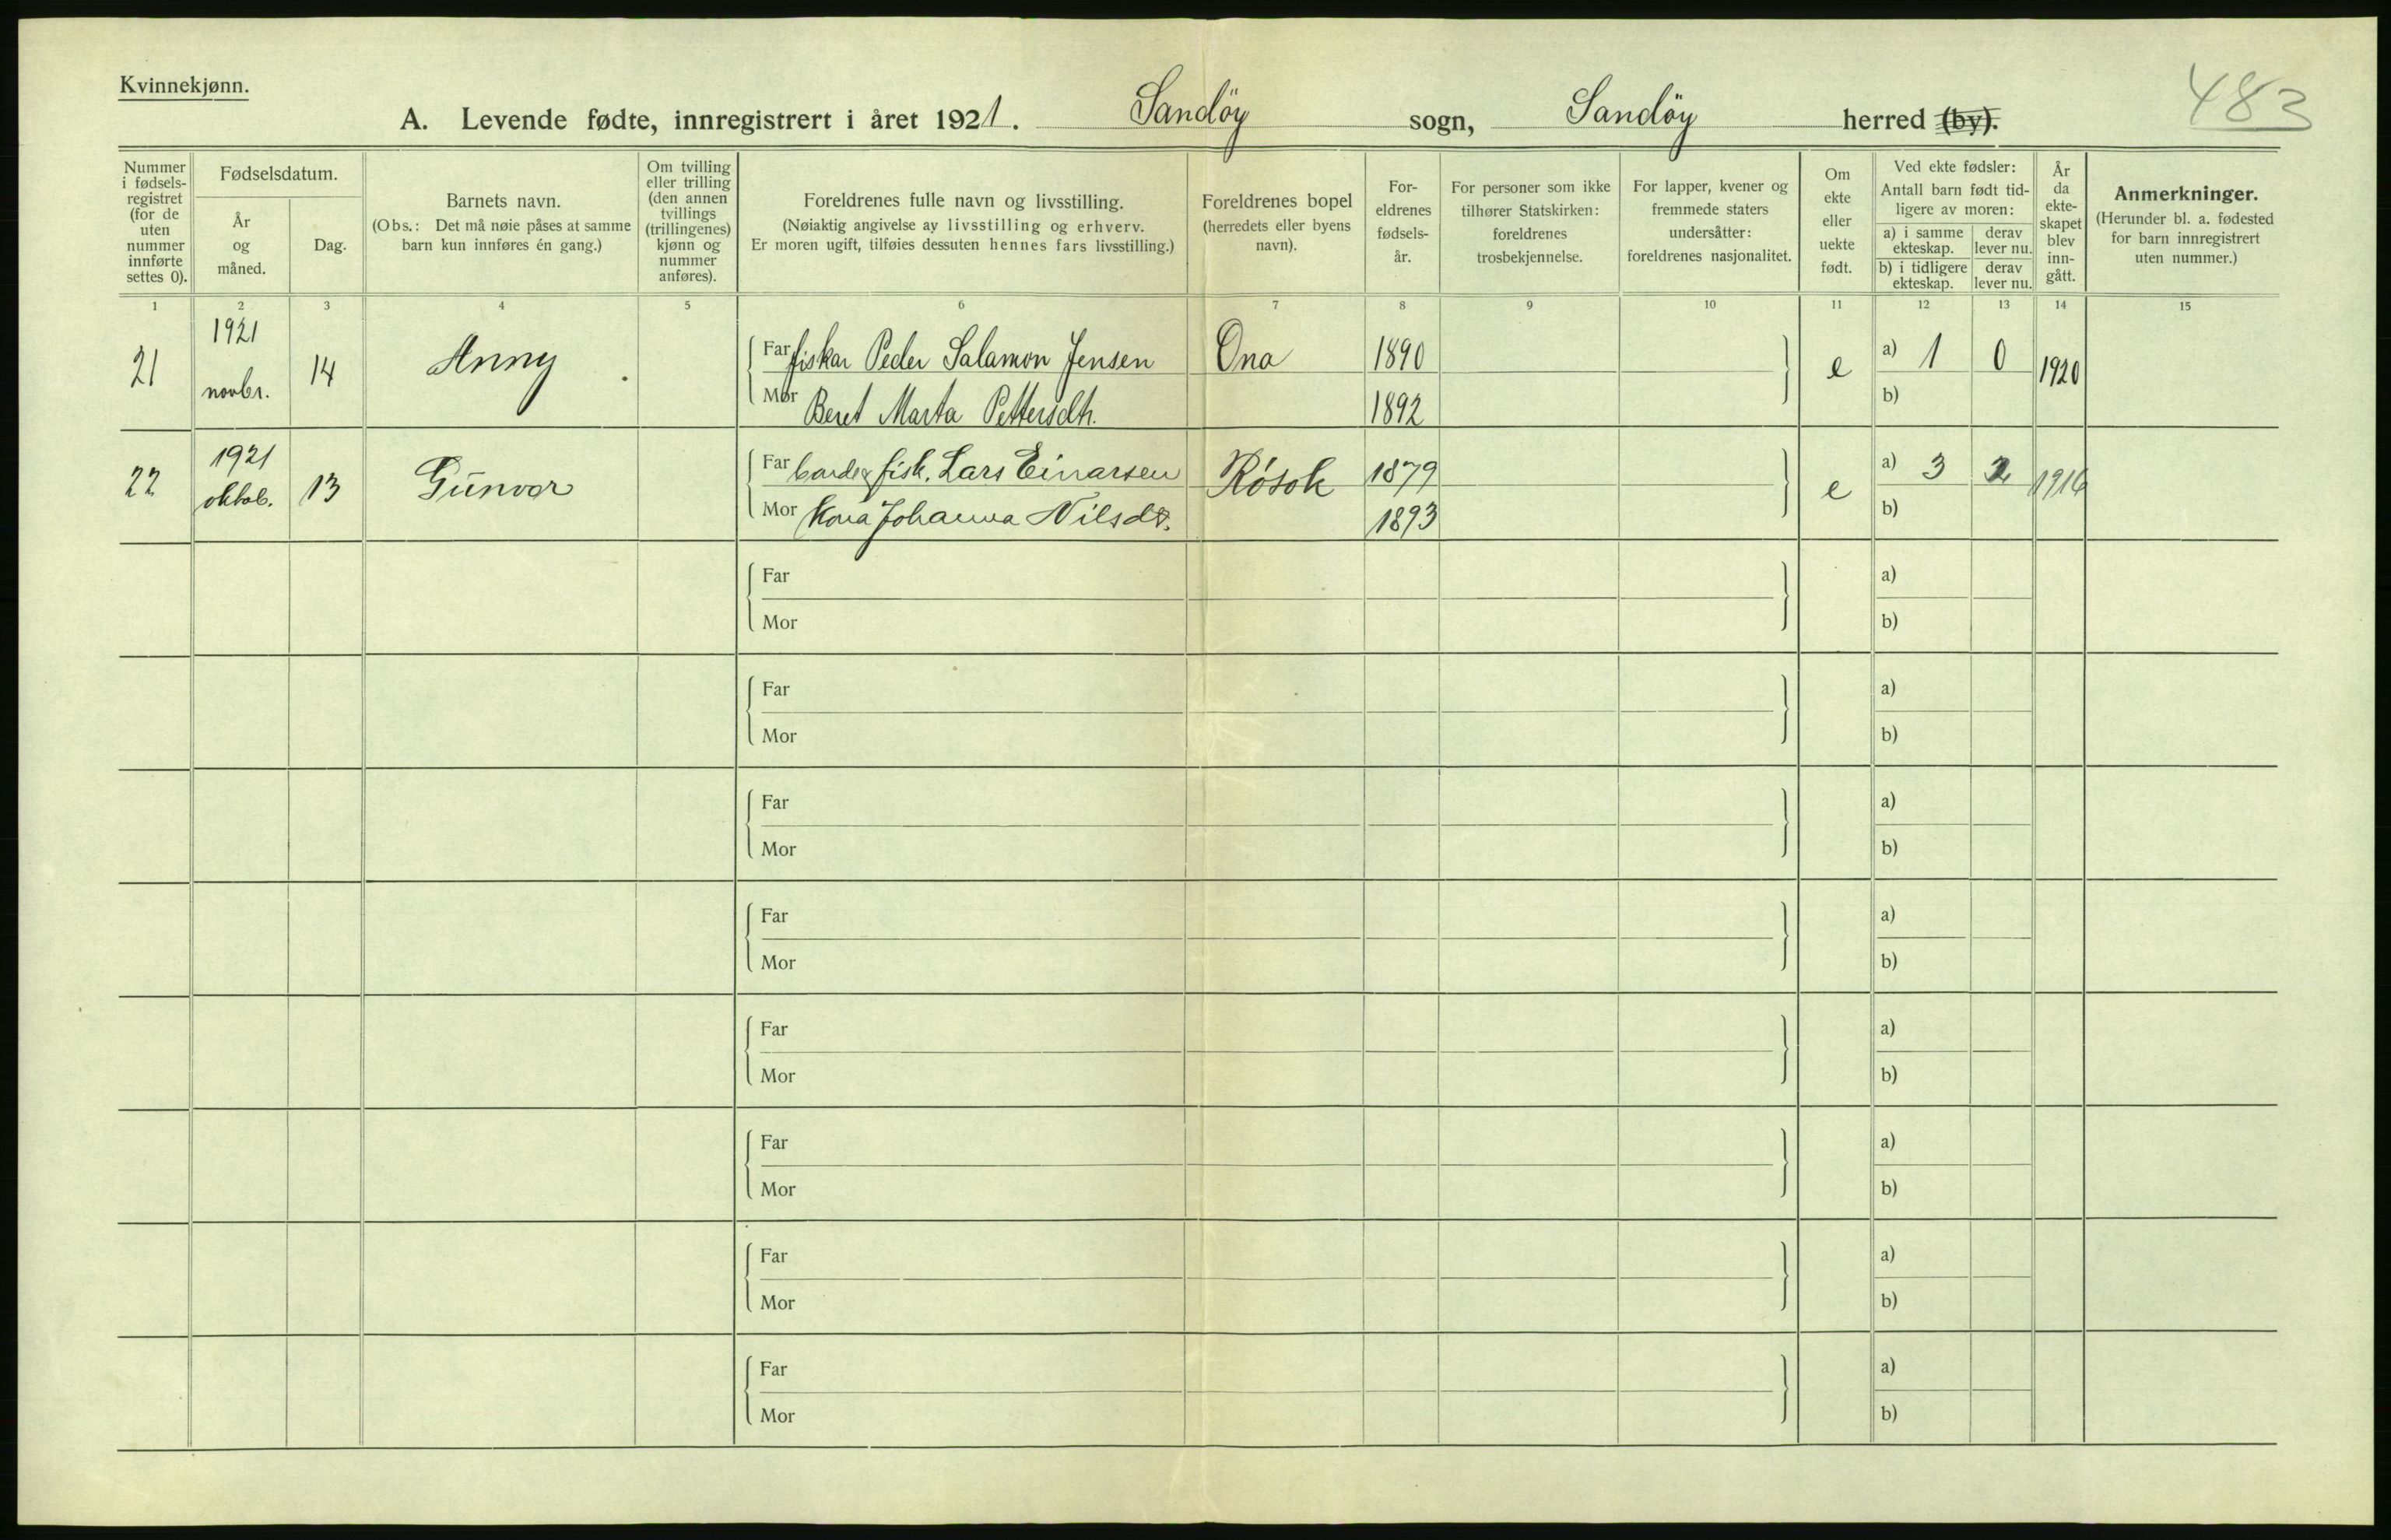 Kvinnekjønn.
483
A. Levende fødte, innregistrert i året 1921. Sandöy sogn, Sandöy herred (by).
Nummer i fødsels-registret (for de uten nummer innførte settes 0).
Fødselsdatum.
År og måned.
Dag.
Barnets navn.
(Obs.: Det må nøie påses at samme barn kun innføres én gang.)
Om tvilling eller trilling (den annen tvillings (trillingenes) kjønn og nummer anføres).
Foreldrenes fulle navn og livsstilling.
(Nøiaktig angivelse av livsstilling og erhverv.
Er moren ugift, tilføies dessuten hennes fars livsstilling.)
Foreldrenes bopel
(herredets eller byens navn).
For-eldrenes fødsels-år.
For personer som ikke tilhører Statskirken: foreldrenes trosbekjennelse.
For lapper, kvener og fremmede staters undersåtter: foreldrenes nasjonalitet.
Om ekte eller uekte født.
Ved ekte fødsler:
Antall barn født tid-ligere av moren:
a) i samme ekteskap.
derav lever nu.
b) i tidligere ekteskap.
derav lever nu.
År da ekte-skapet blev inn-gått.
Anmerkninger.
(Herunder bl. a. fødested for barn innregistrert uten nummer.)
1 2 3 4 5 6 7 8 9 10 11 12 13 14 15
21 1921 novbr. 14 Anny
Far fiskar Peder Salamon Jensen Ona 1890 e a) 1 0 1920
Mor Beret Marta Pettersdtr. 1892 b)
22 1921 oktob. 13 Gunvor
Far fisk. Lars Einarsen Rósok 1879 e a) 3 2 1916
Mor Johanna Nilsdt. 1893 b)
Far a)
Mor b)
Far a)
Mor b)
Far a)
Mor b)
Far a)
Mor b)
Far a)
Mor b)
Far a)
Mor b)
Far a)
Mor b)
Far a)
Mor b)